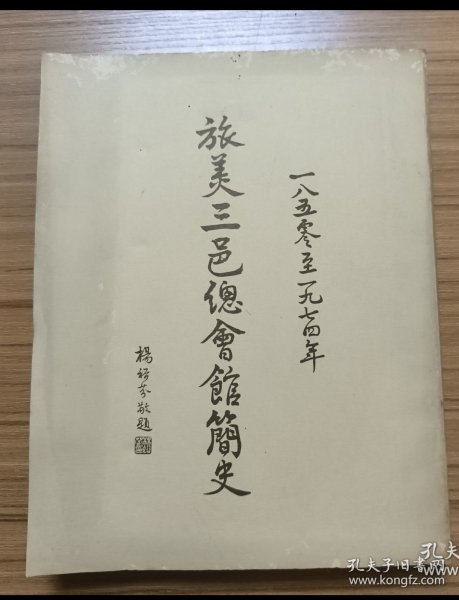 一八五零至一九七四年
旅美三邑總會館簡史
楊
敬題
孔夫子旧书网
www.kongfz.com
孔夫
www.k